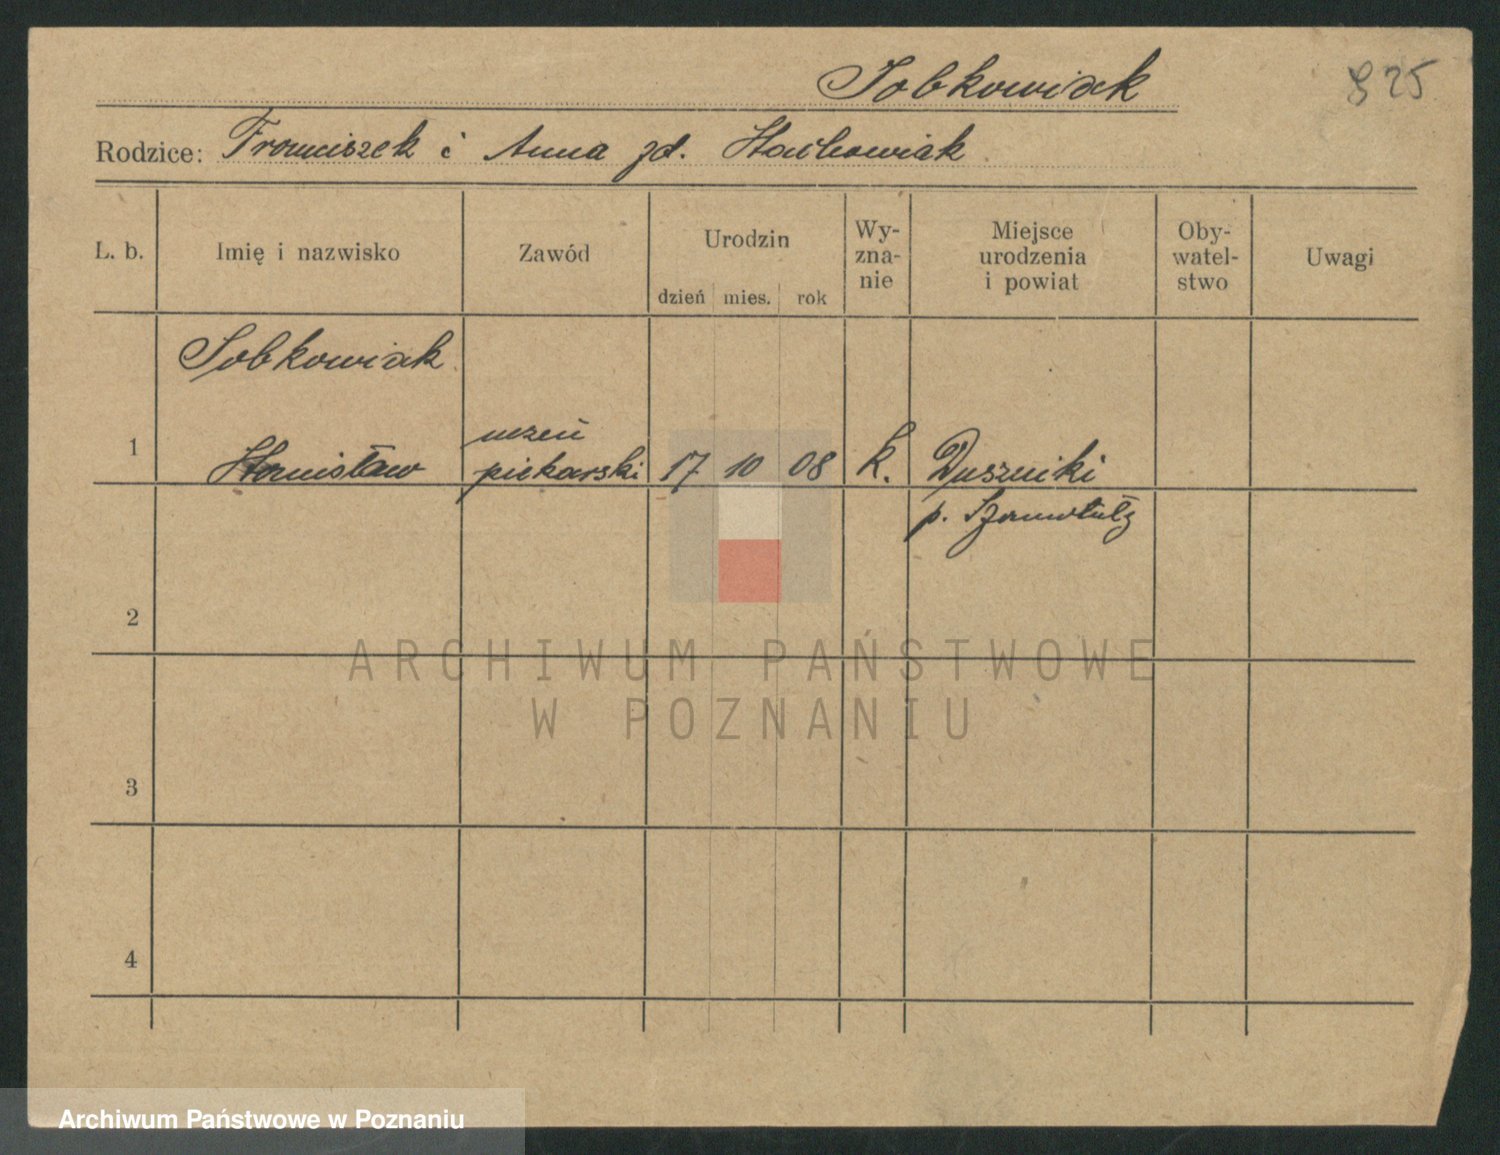 Sobkowiak
925
Rodzice: Franciszek i Anna zd. Stachowiak
L. b.
Imię i nazwisko
Zawód
Urodzin
dzień mies. rok
Wy-
zna-
nie
Miejsce
urodzenia
i powiat
Oby-
watel-
stwo
Uwagi
Sobkowiak
1
Stanisław
uczeń
piekarski
17 10 08
k.
Duszniki
p. Szamotuły
2
3
4
ARCHIWUM PAŃSTWOWE
W POZNANIU
Archiwum Państwowe w Poznaniu